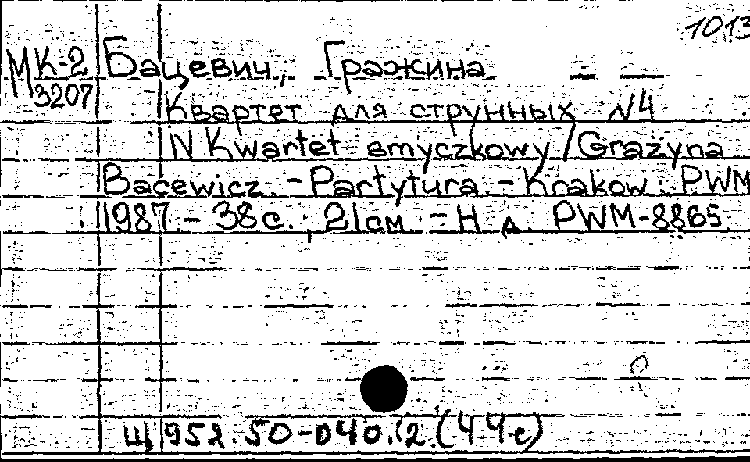 1013
МК-2 Бацевич, Гражина
3207 Квартет для струнных N4
IV Kwartet smyczkowy / Grażyna
Bacewicz. - Partytura. - Krakow: PWM
1987. - 38с.; 21см. - Н. д. PWM-8865.
Щ 952.50-040.12.(44-е)